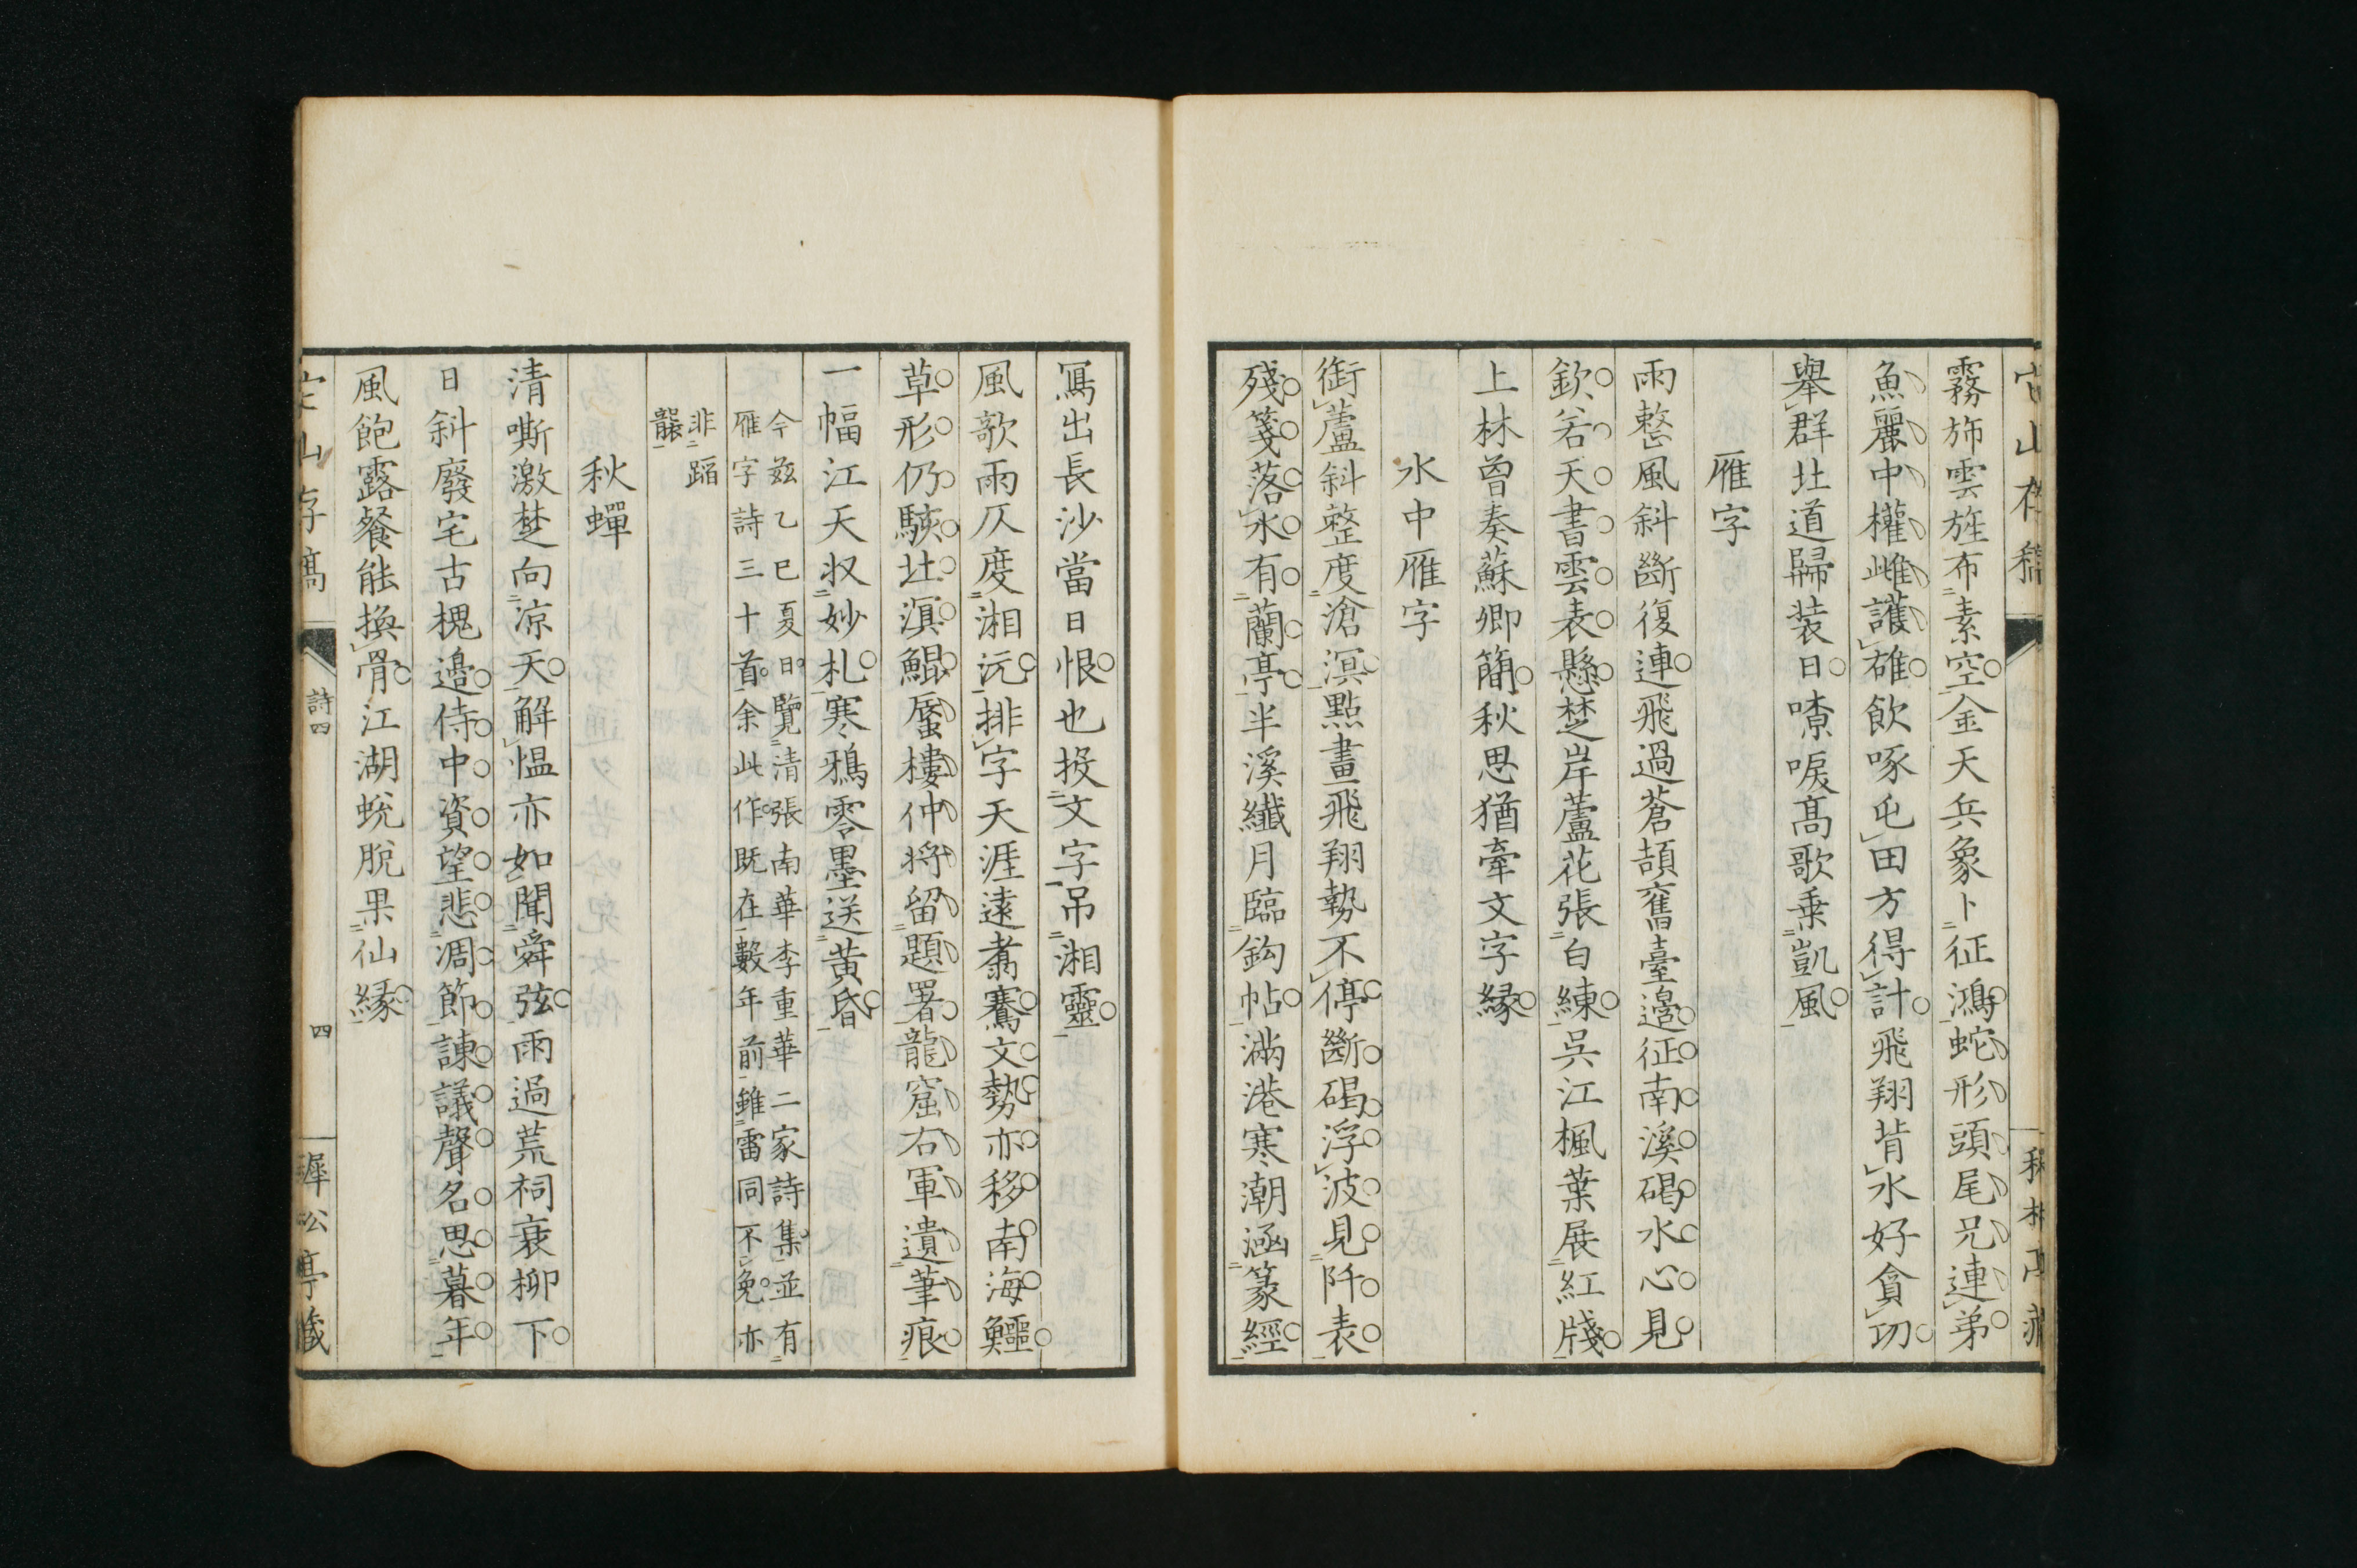 霧斾雲旌布素空金天兵象卜征鴻蛇形頭尾兄連弟
魚麗中權雌護雄飲啄屯田方得計飛翔背水好貪功
舉群北道歸装日嘹唳髙歌乗凱風
雁字
雨整風斜斷復連飛過蒼頡舊臺邉征南溪碣水心見
欽若天書雲表懸楚岸蘆花張白練呉江楓葉展紅牋
上林曽奏蘇卿簡秋思猶牽文字縁
水中雁字
銜蘆斜整度滄溟點畫飛翔勢不停斷碣浮波見阡表
殘箋落水有蘭亭半溪纎月臨鈎帖滿港寒潮涵篆經
冩出長沙當日恨也投文字吊湘靈
風歌雨仄度湘沅排字天涯遠翥騫文勢亦移南海鱷
草形仍駭北溟鯤蜃樓仲将留題署龍窟右軍遺筆痕
一幅江天収妙札寒鴉零墨送黄昏
今茲乙巳夏日覽清張南華李重華二家詩集並有
雁字詩三十首余此作既在數年前雖雷同不免亦
非蹈
襲
秋蟬
清嘶激楚向凉天解愠亦如聞舜弦雨過荒祠衰柳下
日斜廢宅古槐邉侍中資望悲凋節諌議聲名思暮年
風飽露餐能換骨江湖蛻脫果仙縁
詩四
四